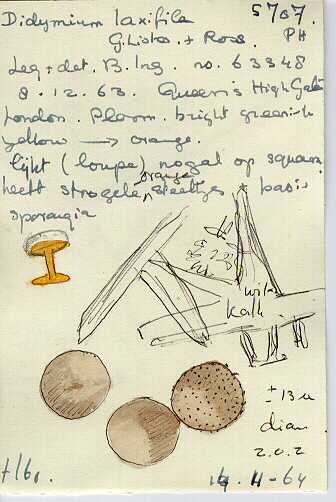 Didymium laxifila 5707.
G. Lister + Ross. PH
Leg + det. B. Ing. no. 63348
8.12.63. Queen's High Gate
London. Plasm. bright greenish
yellow → orange.
lijkt (loupe) nogal op squam.
heeft strogele, orange steeltjes + basis
sporangia
witte
Kalk
± 13 u
diam
2.0.2
14-11-64